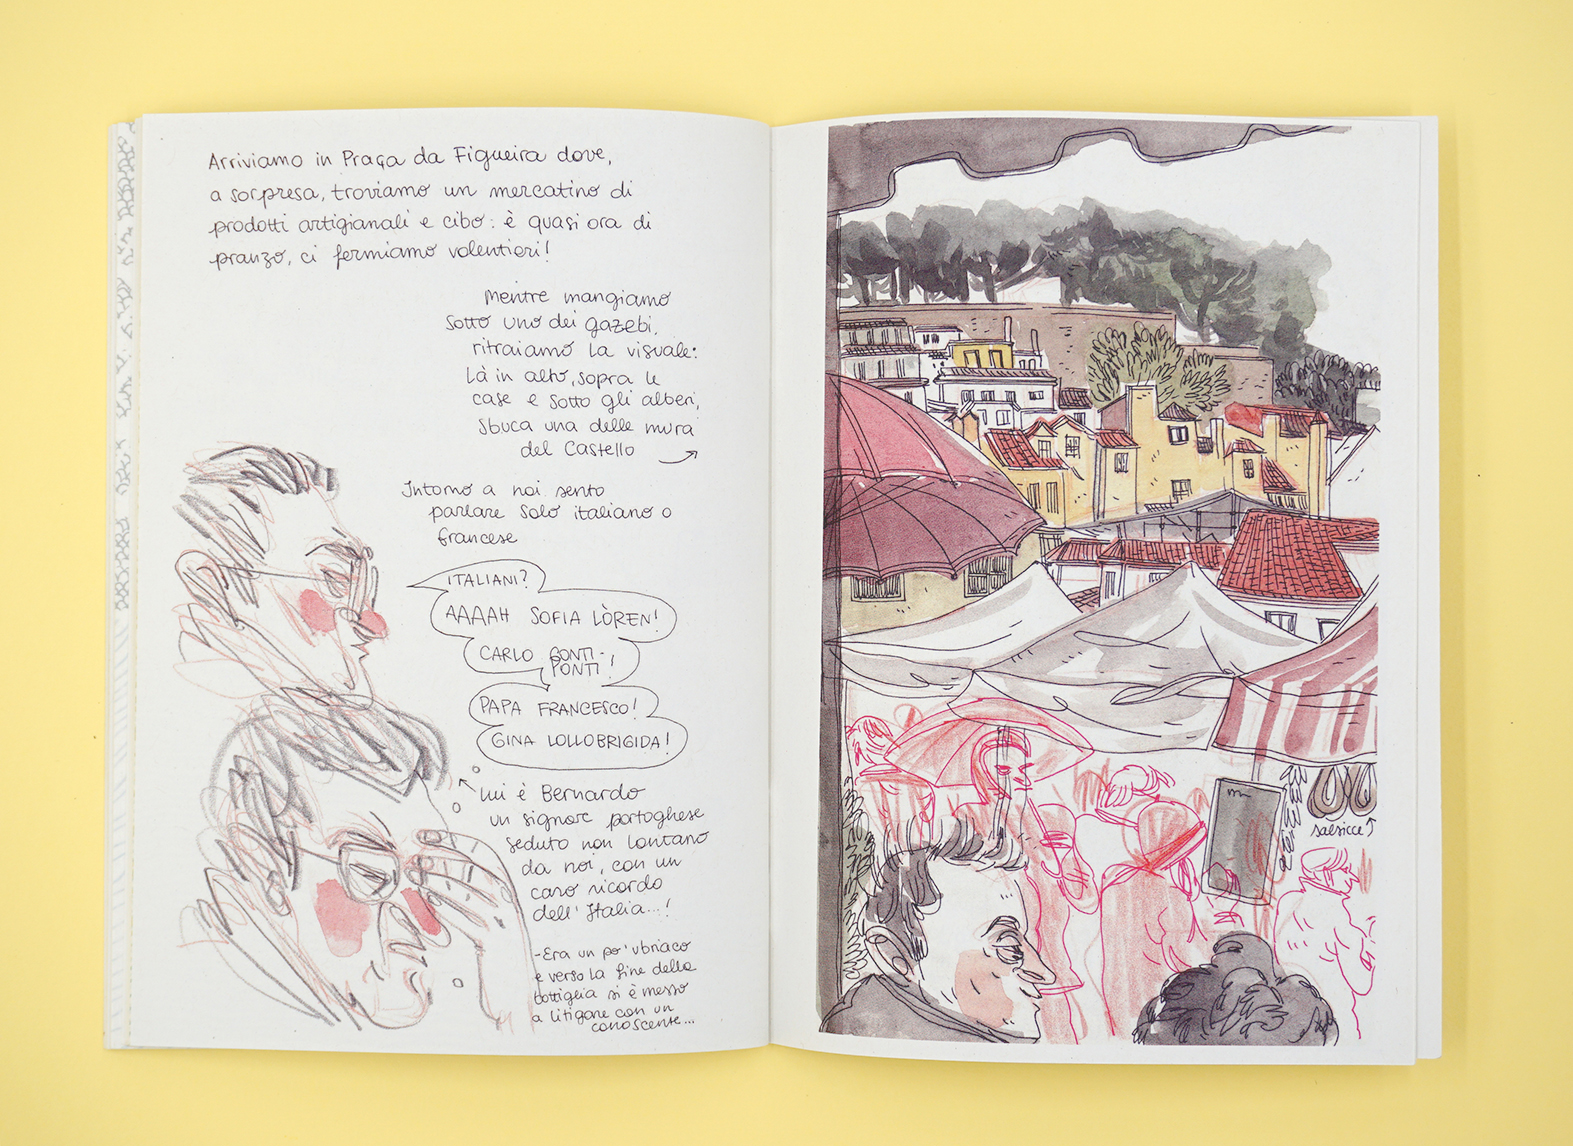 Arriviamo in Praça da Figueira dove,
a sorpresa, troviamo un mercatino di
prodotti artigianali e cibo: è quasi ora di
pranzo, ci fermiamo volentieri!
Mentre mangiamo
sotto uno dei gazebi,
ritraiamo la visuale:
là in alto, sopra le
case e sotto gli alberi,
sbuca una delle mura
del Castello
Intorno a noi sento
parlare solo italiano o
francese
ITALIANI?
AAAAH SOFIA LÒREN!
CARLO GONTI-
PONTI!
PAPA FRANCESCO!
GINA LOLLOBRIGIDA!
Lui è Bernardo
un signore portoghese
seduto non lontano
da noi, con un
caro ricordo
dell'Italia...!
-Era un po' ubriaco
e verso la fine della
bottiglia si è messo
a litigare con un
conoscente...
salsicce